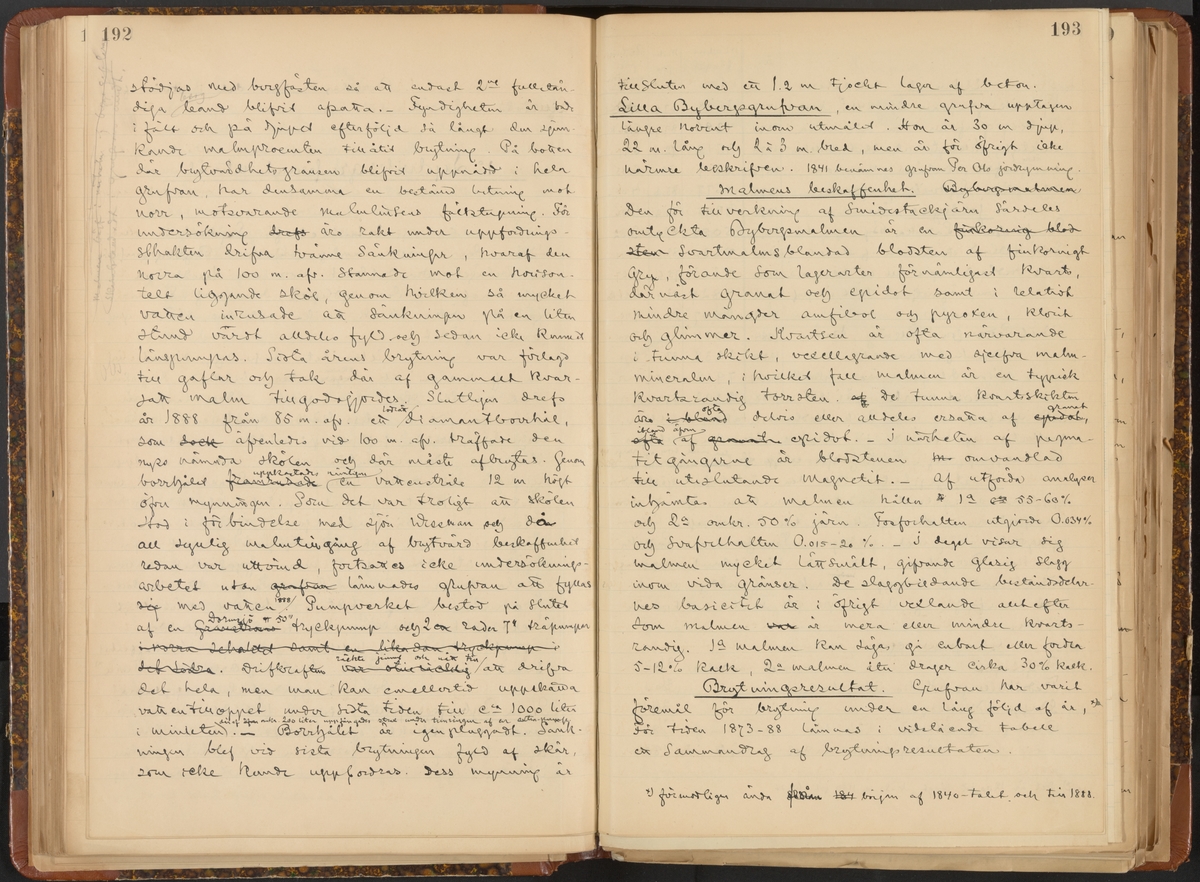 192
stödjas med bergfästen så att endast 2ne fullstän-
diga band blifvit afsatta. — Fyndigheten är
i fält och på djupet efterföljd så långt den sjun-
kande malmprocenten tillåtit brytning. På botten
där brytvärdhetsgränsen blifvit uppnådd i hela
grufvan, har densamma en bestämd lutning mot
norr, motsvarande malmlinsens fältstupning. För
undersökning drefs äro rakt under uppfordrings-
schakten drifva tvänne sänkningar, hvaraf den
norra på 100 m. afv. stannade mot en horison-
telt liggande sköl, genom hvilken så mycket
vatten inrusade att sänkningen på en liten
stund värdt alldeles fyld och sedan icke kunnat
länspumpas. Sista årens brytning var förlagd
till gaflar och tak där af gammalt kvar-
satt malm tillgodogjordes. Slutligen drefs
år 1888 från 85 m. afv. ett lodrätt diamantborrhål,
som dock afvenledes vid 100 m. afv. träffade den
nyss nämnda skölen och där måste afbrytas. Genom
borrhålet framrusade uppkastades en vattenstråle 12 m högt
öfver mynningen. Som det var troligt att skölen
stod i förbindelse med sjön Wessman och då
all synlig malmtillgång af brytvärd beskaffenhet
redan var utvunnen, fortsattes icke undersöknings-
arbetet utan grufvan lämnades grufvan att fyllas
sig med vatten 1888. Pumpverket bestod på slutet
af en tryckpump och 2 rader 7" träpumpar
i norra schaktet samt en likadan tryckpump i
det södra. Drifkraften var otillräcklig att drifva
det hela, men man kan emellertid uppskatta
vattentilloppet under sista tiden till ca 1000 liter
i minuten. — Borrhålet är igenpluggadt. Sänk-
ningen blef vid sista brytningen fyld af skär,
som icke kunde uppfordras. Dess mynning är
193
tillsluten med ett 1.2 m tjockt lager af beton.
Lilla Bybergsgrufvan, en mindre grufva upptagen
längre norrut inom utmålet. Hon är 30 m djup,
22 m. lång och 2 à 3 m. bred, men är för öfrigt icke
närmre beskrifven. 1841 benämnes grufvan Per Ols jordrymning.
Malmens beskaffenhet. Bybergsmalmen
Den för tillverkning af Smidestackjärn särdeles
omtyckta Bybergsmalmen är en finkornig blod
sten Svartmalmsblandad blodsten af finkornigt
gry, förande som lagerarter förnämligast kvarts,
därnäst granat och epidot samt i relativt
mindre mängder amfibol och pyroxen, klorit
och glimmer. Kvartsen är ofta närvarande
i tunna skikt, vexellagrande med sjelfva malm-
mineralen, i hvilket fall malmen är en typisk
kvartsrandig torrsten. De tunna kvartsskikten
äro i bland ofta delvis eller alldeles ersatta af epidot, granat
ofta ibland äfven af granat epidot. — I närheten af pegma-
titgångarne är blodstenen omvandlad
till uteslutande magnetit. — Af utförda analyser
inhämtas att malmen håller 1a 55-60%
och 2a omkr. 50% järn. Fosforhalten utgjorde 0.034%
och svafvelhalten 0.015-20 %. — I degel visar sig
malmen mycket lättsmält, gifvande glasig slagg
inom vida gränser. De slaggbildande beståndsdelar-
nes basicitet är i öfrigt vexlande allt efter
som malmen var är mera eller mindre kvarts-
randig. 1a malmen kan sägas gå enbart eller fordra
5-12% kalk, 2a malmen åter drager cirka 30% kalk.
Brytningsresultat. Grufvan har varit
föremål för brytning under en lång följd af år, *)
för tiden 1873-88 lämnas i vidstående tabell
ett Sammandrag af brytningsresultaten.
*) förmodligen ända från 184 början af 1840-talet och till 1888.